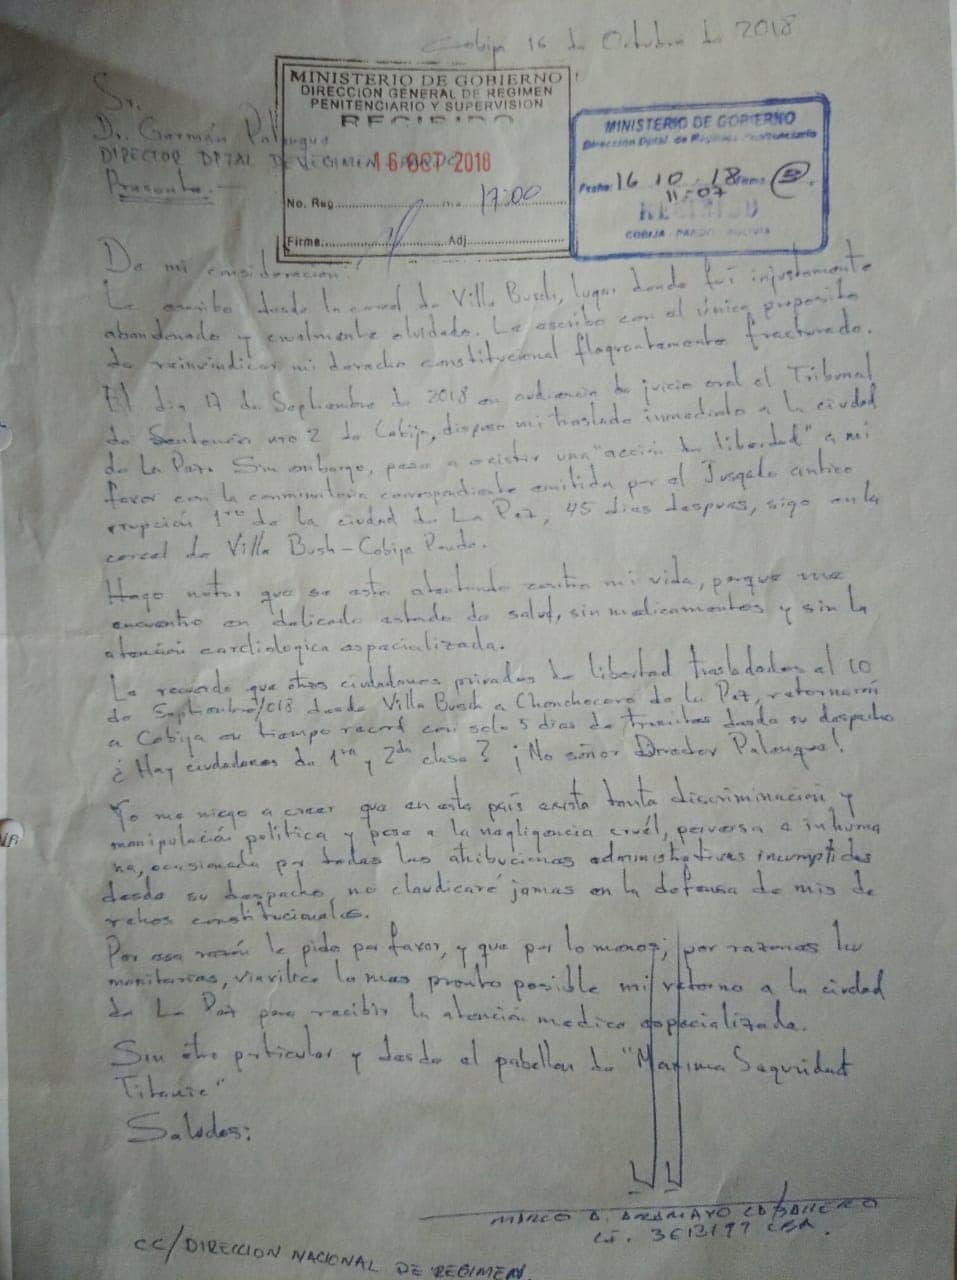 Cobija 16 de Octubre de 2018
Sr.
Dr. Germán Palenque
DIRECTOR DPTAL DE REGIMEN PANDO
Presente.-
MINISTERIO DE GOBIERNO
DIRECCION GENERAL DE REGIMEN
PENITENCIARIO Y SUPERVISION
RECIBIDO
16 OCT 2018
No. Reg. 17:00
Firma: Adj.
MINISTERIO DE GOBIERNO
Dirección Dptal. de Régimen Penitenciario
Fecha: 16 10 18
11:07
RECIBIDO
COBIJA - PANDO - BOLIVIA
De mi consideración:
Le escribo desde la carcel de Villa Busch, lugar donde fui injustamente
abandonado y cruelmente olvidado. Le escribo con el único proposito
de reinvindicar mi derecho constitucional flagrantemente fracturado.
El día 17 de Septiembre de 2018 en audiencia de juicio oral el Tribunal
de Sentencia nro 2 de Cobija, dispuso mi traslado inmediato a la ciudad
de La Paz. Sin embargo, pese a existir una "acción de libertad" a mi
favor con la conminatoria correspondiente emitida por el Jusgado antico
rrupción 1ro de la ciudad de La Paz, 45 dias despues, sigo en la
carcel de Villa Bush-Cobija Pando.
Hago notar que se esta atentando contra mi vida, porque me
encuentro en delicado estado de salud, sin medicamentos y sin la
atención cardiologica especializada.
Le recuerdo que otros ciudadanos privados de libertad trasladados el 10
de Septiembre/018 desde Villa Busch a Chonchocoro de La Paz, retornaron
a Cobija en tiempo record con solo 5 dias de tramites desde su despacho
¿Hay ciudadanos de 1ra y 2da clase? ¡No señor Director Palenque!
Yo me niego a creer que en este país exista tanta discriminacion y
manipulación politica y pese a la negligencia cruél, perversa e inhuma
na, ocasionada por todas las atribuciones administrativas incumplidas
desde su despacho, no claudicaré jamas en la defensa de mis de
rechos constitucionales.
Por esa razón le pido por favor, y que por lo menos, por razones hu
manitarias, viavilice lo mas pronto posible mi retorno a la ciudad
de La Paz para recibir la atención medica especializada.
Sin otro particular y desde el pabellon de "Maxima Seguridad
Titanic"
Saludos:
MARCO A. ARAMAYO CABALLERO
C.I. 3613197 CBA.
CC/DIRECCION NACIONAL DE REGIMEN.